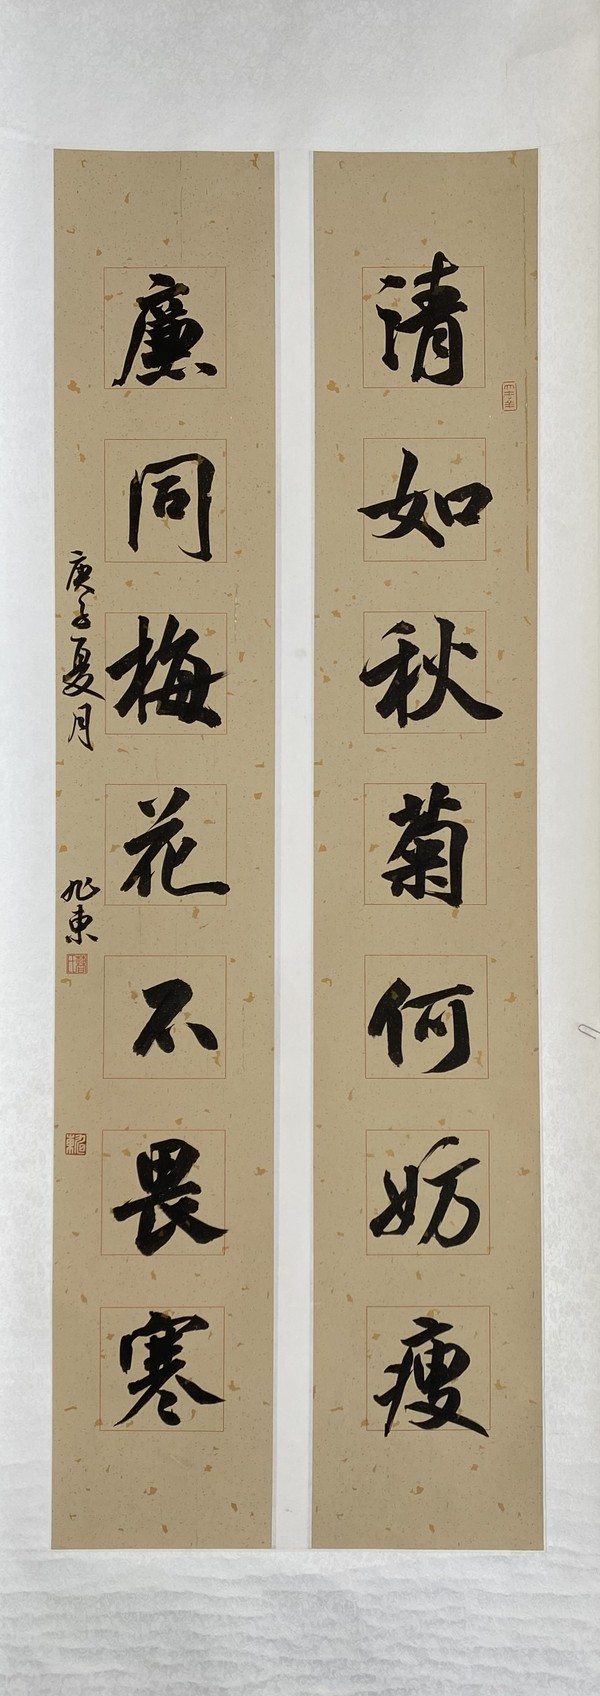 清如秋菊何妨瘦
廉同梅花不畏寒
庚子夏月
旭東